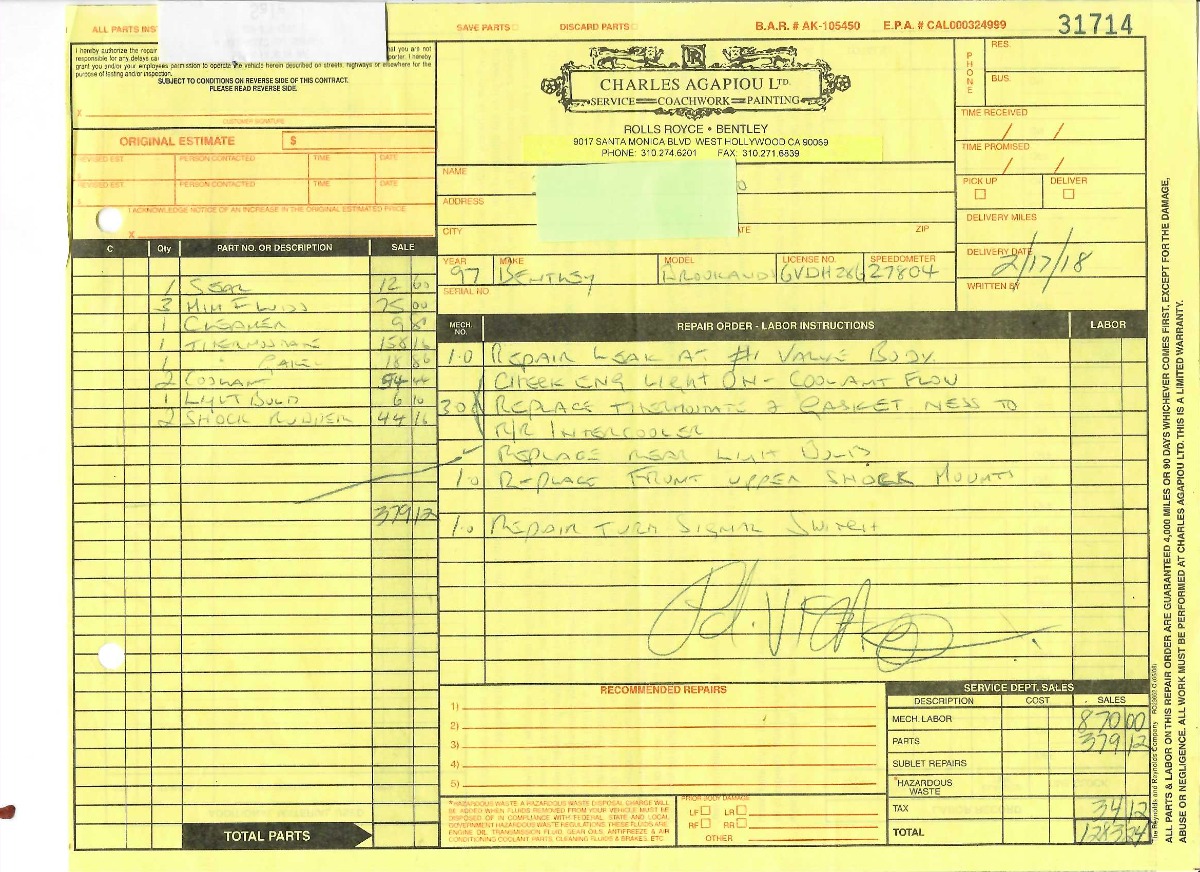 ALL PARTS INS
SAVE PARTS
DISCARD PARTS
B.A.R. # AK-105450
E.P.A. # CAL000324999
31714
I hereby authorize the repair
at you are not
responsible for any delays ca
porter. I hereby
grant you and/or your employees permission to operate the vehicle herein described on streets, highways or elsewhere for the
purpose of testing and/or inspection.
SUBJECT TO CONDITIONS ON REVERSE SIDE OF THIS CONTRACT.
PLEASE READ REVERSE SIDE.
X
CUSTOMER SIGNATURE
ORIGINAL ESTIMATE $
REVISED EST. PERSON CONTACTED TIME DATE
REVISED EST. PERSON CONTACTED TIME DATE
I ACKNOWLEDGE NOTICE OF AN INCREASE IN THE ORIGINAL ESTIMATED PRICE.
X
RR
CHARLES AGAPIOU LTD.
SERVICE COACHWORK PAINTING
ROLLS ROYCE • BENTLEY
9017 SANTA MONICA BLVD WEST HOLLYWOOD CA 90069
PHONE: 310.274.6201 FAX: 310.271.6839
PHONE
RES.
BUS.
TIME RECEIVED
/ /
TIME PROMISED
/ /
PICK UP DELIVER
DELIVERY MILES
DELIVERY DATE
2/17/18
WRITTEN BY
NAME
ADDRESS
CITY ATE ZIP
YEAR MAKE MODEL LICENSE NO. SPEEDOMETER
97 BENTLEY 6VDH286 27804
SERIAL NO.
C Qty PART NO. OR DESCRIPTION SALE
1 SEAL 12 60
3 MIN FLUID 75 00
1 CLEANER 9 8
1 THERMOSTAT 158 16
1 " GASKET 18 86
2 COOLANT 54 44
1 LIGHT BULB 6 10
2 SHOCK RUBBER 44 16
379 12
TOTAL PARTS
MECH. NO. REPAIR ORDER - LABOR INSTRUCTIONS LABOR
1.0 REPAIR LEAK AT #1 VALVE BODY
CHECK ENG LIGHT ON - COOLANT FLOW
30 REPLACE THERMOSTAT & GASKET NESS TO
R/R INTERCOOLER
REPLACE REAR LIGHT BULB
1.0 REPLACE FRONT UPPER SHOCK MOUNTS
1.0 REPAIR TURN SIGNAL SWITCH
RECOMMENDED REPAIRS
1)
2)
3)
4)
5)
*HAZARDOUS WASTE: A HAZARDOUS WASTE DISPOSAL CHARGE WILL
BE ADDED WHEN FLUIDS REMOVED FROM YOUR VEHICLE MUST BE
DISPOSED OF IN COMPLIANCE WITH FEDERAL, STATE AND LOCAL
GOVERNMENT HAZARDOUS WASTE REGULATIONS. THESE FLUIDS ARE
ENGINE OIL, TRANSMISSION FLUID, GEAR OILS, ANTIFREEZE & AIR
CONDITIONING COOLANT PARTS, CLEANING FLUIDS & BRAKES, ETC.
PRIOR BODY DAMAGE
LF LR
RF RR
OTHER
SERVICE DEPT. SALES
DESCRIPTION COST SALES
MECH. LABOR 870 00
PARTS 379 12
SUBLET REPAIRS
*HAZARDOUS WASTE
TAX 34 12
TOTAL 1283 24
The Reynolds and Reynolds Company
ALL PARTS & LABOR ON THIS REPAIR ORDER ARE GUARANTEED 4,000 MILES OR 90 DAYS WHICHEVER COMES FIRST, EXCEPT FOR THE DAMAGE,
ABUSE OR NEGLIGENCE. ALL WORK MUST BE PERFORMED AT CHARLES AGAPIOU LTD. THIS IS A LIMITED WARRANTY.